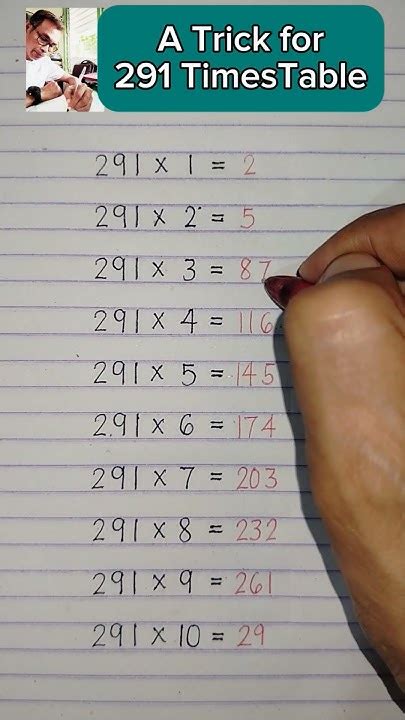 A Trick for
291 TimesTable
291 x 1 = 2
291 x 2 = 5
291 x 3 = 87
291 x 4 = 116
291 x 5 = 145
291 x 6 = 174
291 x 7 = 203
291 x 8 = 232
291 x 9 = 261
291 x 10 = 29